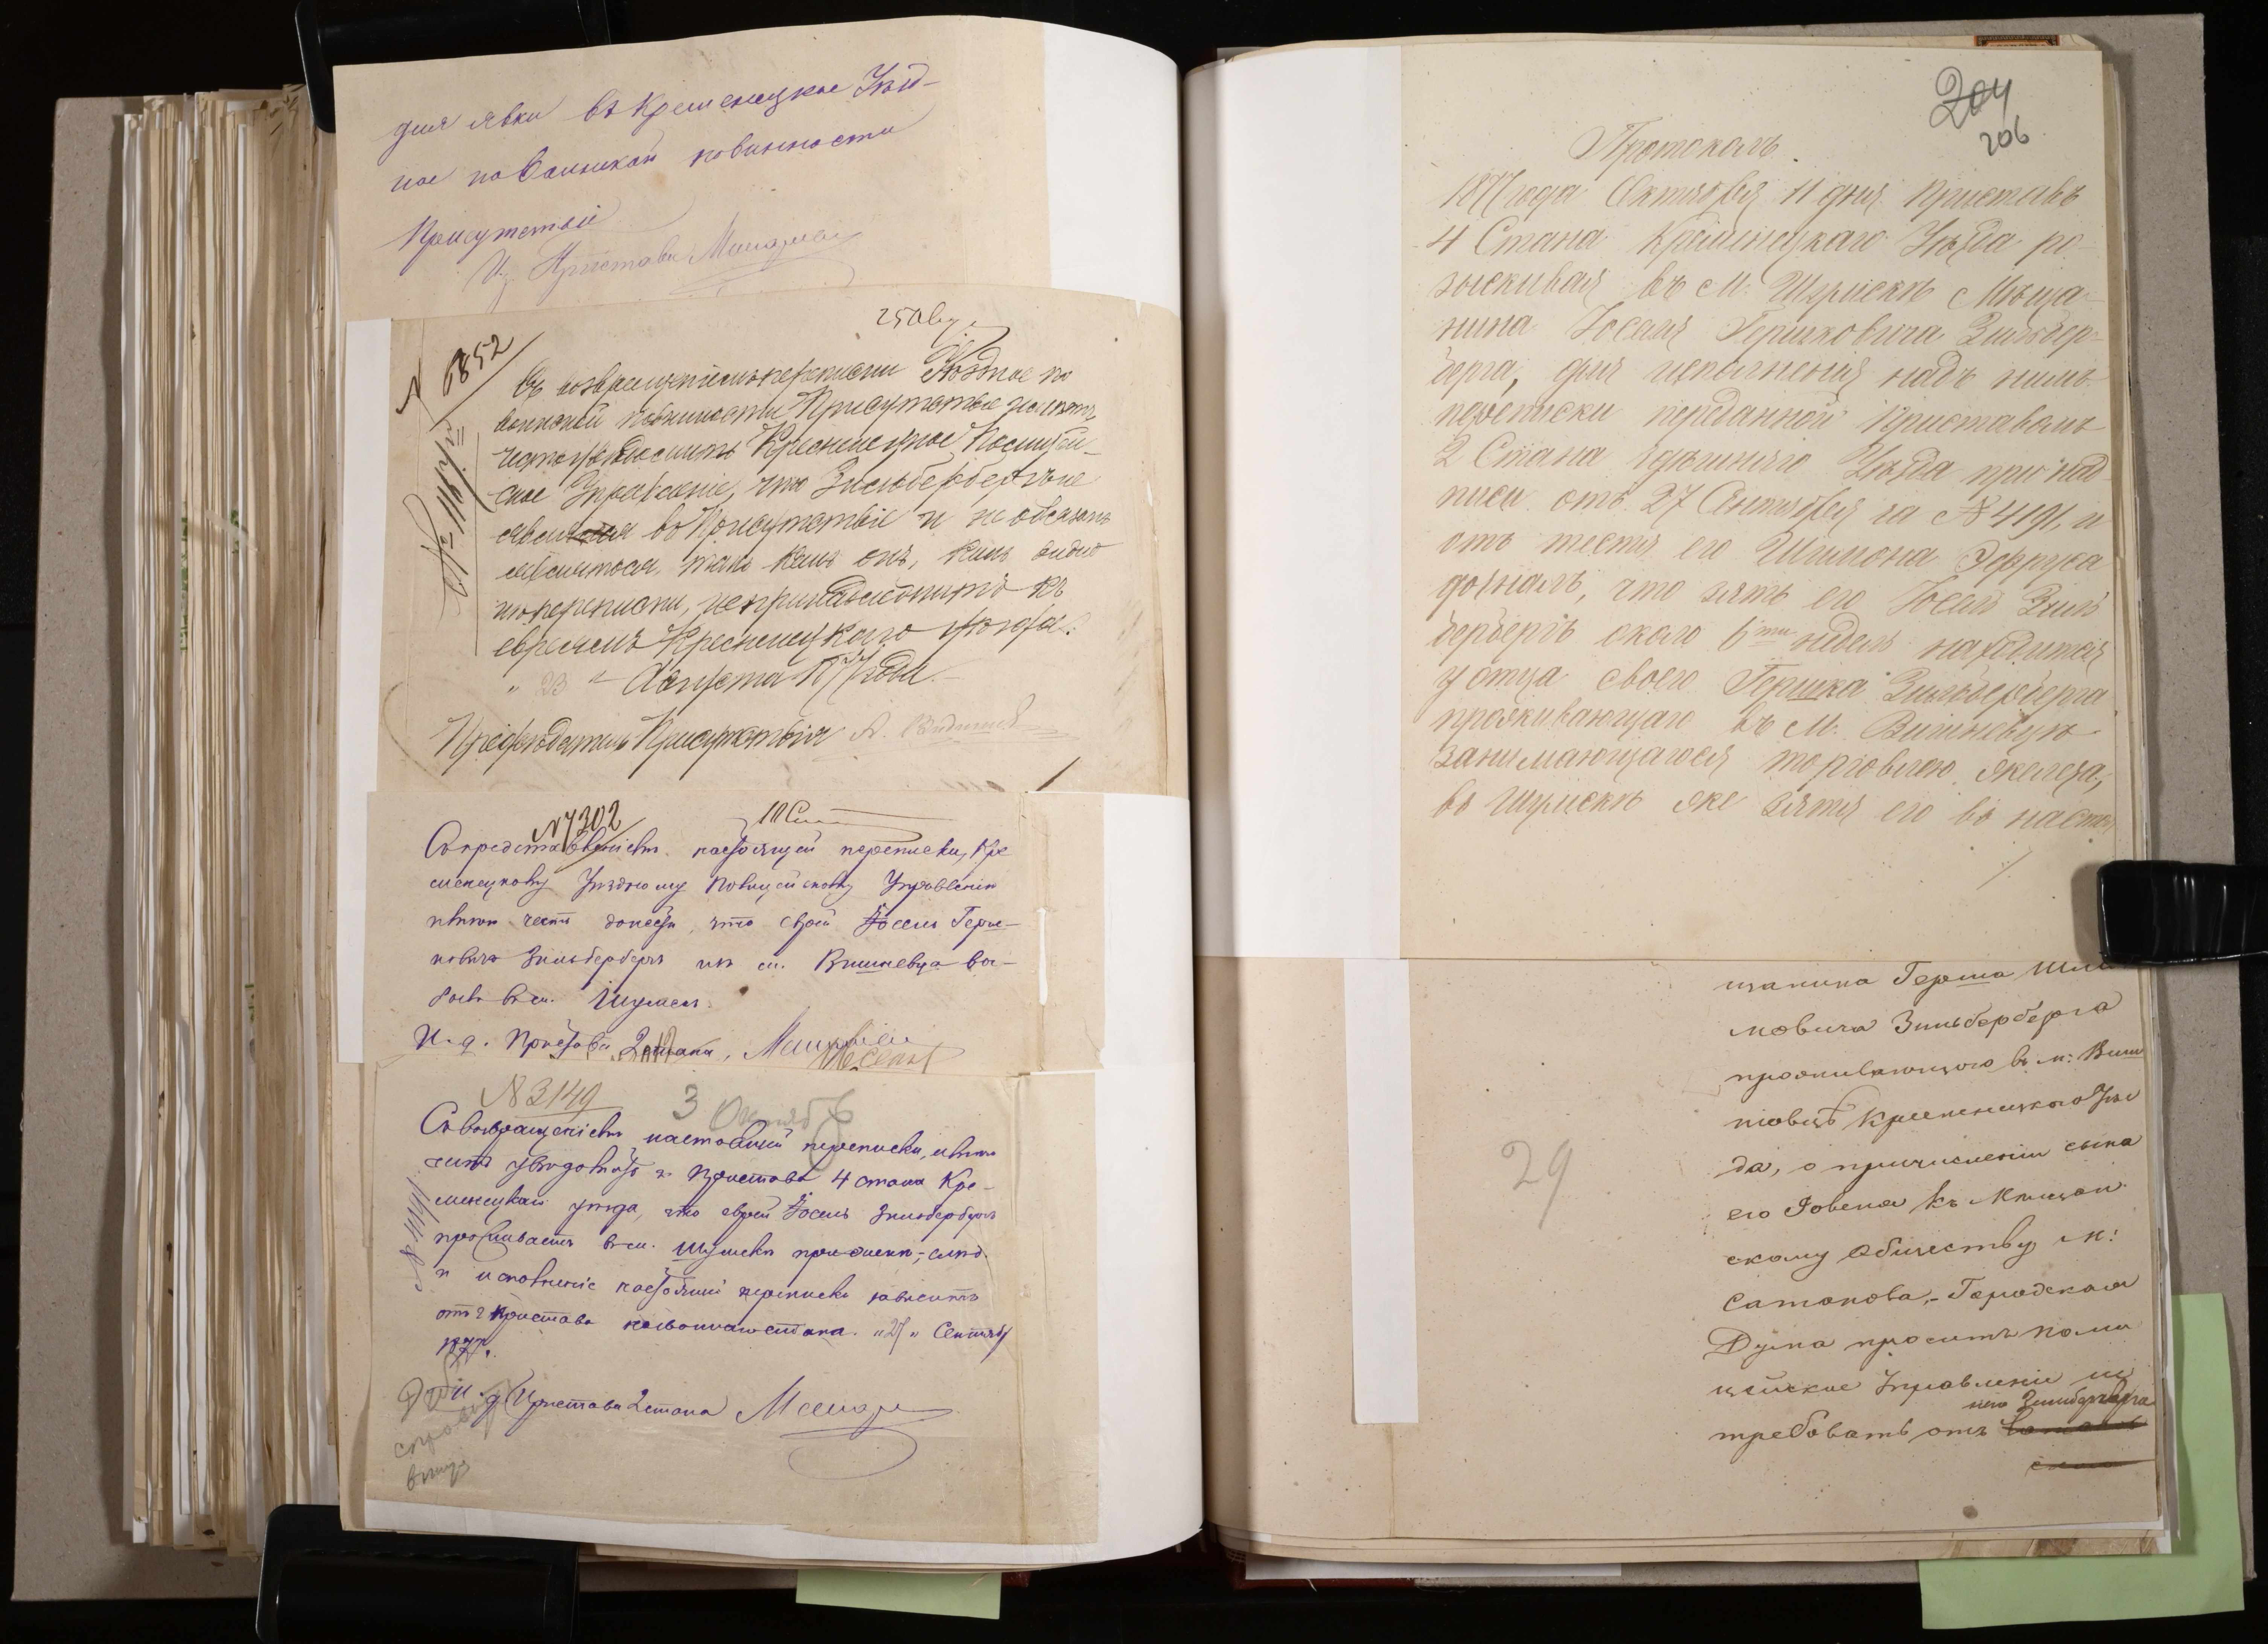 для явки въ Кременецкое Уѣзд-
ное по Воинской повинности
Присутствіе
И. Пристава
25 Авг.
N 6852
Съ возвращеніемъ переписки Уѣздное по
воинской повинности Присутствіе имѣетъ
честь увѣдомить Кременецкое Полицей-
ское Управленіе, что Зильбербергъ не
явился въ Присутствіе и не обязанъ
явиться, такъ какъ онъ, какъ видно
изъ переписки, непринадлежитъ къ
евреямъ Кременецкого уѣзда.
" 23 " Августа 1877 года.
Предсѣдатель Присутствія
N 7302
10 Сен
Съ представленіемъ настоящей переписки, Кре
менецкому Уѣздному Полицейскому Управленію
имѣю честь донести, что еврей Іосель Герш-
ковичъ Зильбербергъ изъ м. Вишневца вы-
былъ въ м. Шумскъ.
И. д. Пристава 2 стана,
N 3149
3 Октября
Съ возвращеніемъ настоящей переписки, имѣю
честь увѣдомить г. Пристава 4 стана Кре-
менецкаго уѣзда, что еврей Іосель Зильбербергъ
проживаетъ въ м. Шумскѣ
и исполненіе настоящей переписки зависитъ
отъ г. Пристава "27" Сентября
1877 г.
И. д. Пристава 2 стана
204
206
Протоколъ.
1877 года Октября 11 дня Приставъ
4 Стана Кременецкаго Уѣзда ро-
зыскивая въ М. Шумскѣ Мѣща-
нина Іоселя Гершковича Зильбер-
берга, для исполненія надъ нимъ
переписки переданной Приставомъ
2 Стана здѣшняго Уѣзда при над-
писи отъ 27 Сентября за N 4191, и
отъ тестя его Шимона Эфруса
дозналъ, что зять его Іосель Зиль
бербергъ около 6ти недѣль находится
у отца своего Гершка Зильберберга
проживающаго въ М. Вишневцѣ
занимающагося торговлею железа,
въ Шумскѣ же зятя его въ настоя
щанина Герша Шлі
мовича Зильберберга
проживающаго въ м: Виш
невцѣ Кременецкаго Уѣз
да, о причисленіи сына
его Ровена къ Мѣщан
скому Обществу м:
Сатанова, - Городская
Дума проситъ Поли
цейское Управленіе ис
него Зильберберга
требовать отъ
29